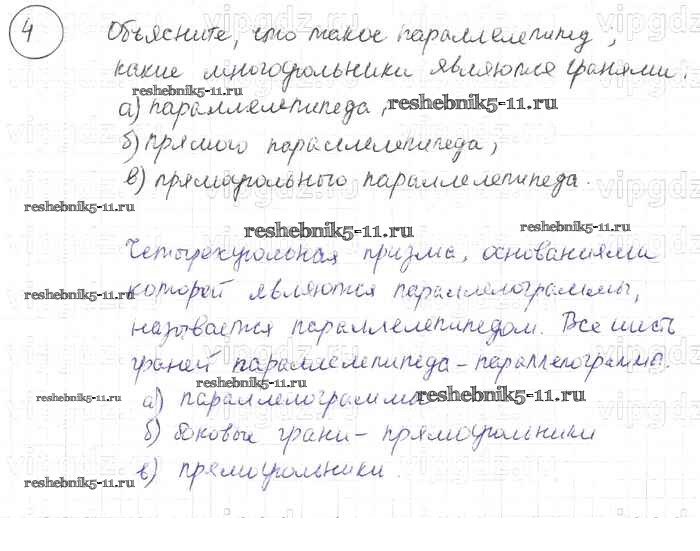 4 Объясните, что такое параллелепипед;
какие многоугольники являются гранями:
reshebnik5-11.ru
а) параллелепипеда, reshebnik5-11.ru
б) прямого параллелепипеда,
в) прямоугольного параллелепипеда.
reshebnik5-11.ru
reshebnik5-11.ru
reshebnik5-11.ru
Четырехугольная призма, основаниями
которой являются параллелограммы,
reshebnik5-11.ru
называется параллелепипедом. Все шесть
граней параллелепипеда - параллелограммы.
reshebnik5-11.ru
reshebnik5-11.ru
а) параллелограммы reshebnik5-11.ru
б) боковые грани - прямоугольники
в) прямоугольники.
reshebnik5-11.ru
vipgdz